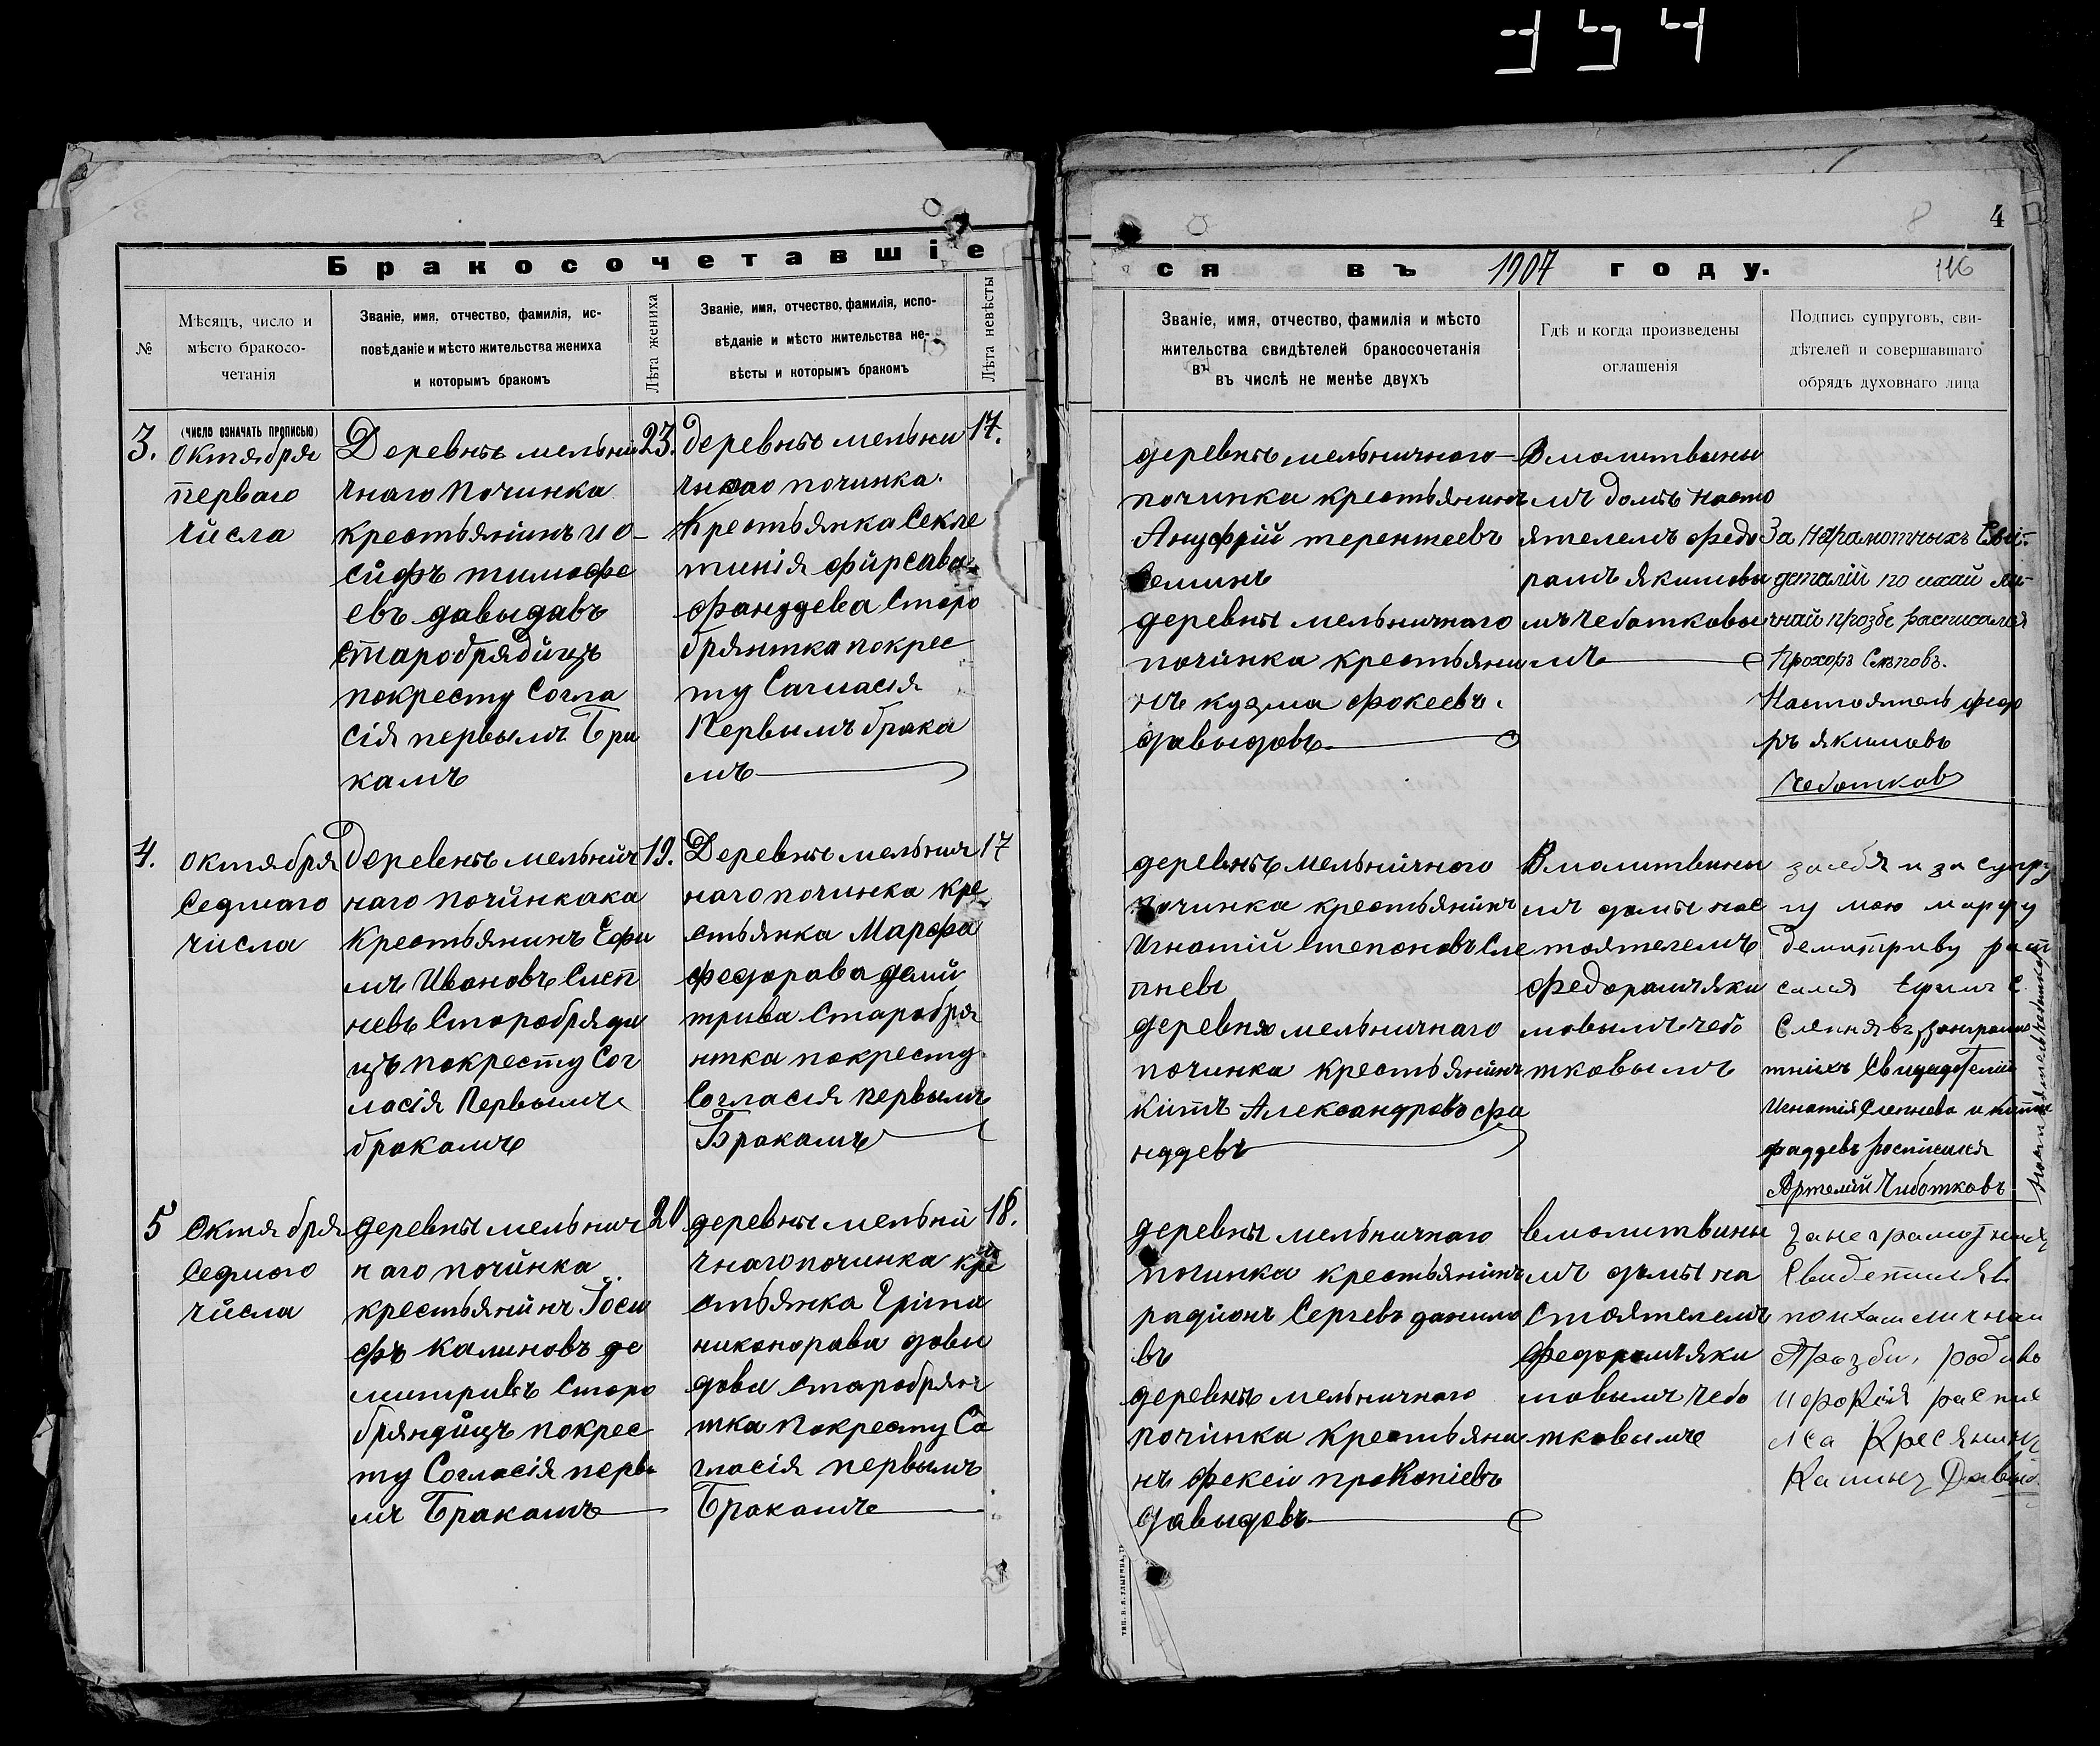 354
4
8
Бракосочетавшіе
ся въ 1907 году.
116
№
Мѣсяцъ, число и
мѣсто бракосо-
четанія
Званіе, имя, отчество, фамилія, ис-
повѣданіе и мѣсто жительства жениха
и которымъ бракомъ
Лѣта жениха
Званіе, имя, отчество, фамилія, испо-
вѣданіе и мѣсто жительства не-
вѣсты и которымъ бракомъ
Лѣта невѣсты
Званіе, имя, отчество, фамилія и мѣсто
жительства свидѣтелей бракосочетанія
въ числѣ не менѣе двухъ
Гдѣ и когда произведены
оглашенія
Подпись супруговъ, сви-
дѣтелей и совершавшаго
обрядъ духовнаго лица
3.
(число означать прописью)
Октября
перваго
числа
Деревнѣ мельни
чнаго Починка
крестьянинъ ио-
сифъ тимофе
евъ давыдавъ
старобрядицъ
покресту Согла
сія первымъ Бра
камъ
23.
деревнѣ мельни
чнаго починка.
Крестьянка Секле
тинія фирсава
фанддева Старо
брянтка покрес
ту Сагласія
Первымъ брака
мъ
17.
деревнѣ мельничнаго
починка крестьянинъ
Ануфрій терентеевъ
Семинъ
деревнѣ мельничнаго
починка крестьяни
нъ кузма фокеевъ.
давыдовъ
Вмолитвины
мъ домѣ насто
ятелемъ федо
рамъ якимовы
мъ Чеботковы
мъ
За Неграмотныхъ Сви-
деталій по ихай ли-
чнай прозбе расписался
Прохоръ Слѣповъ.
Настоятель федо
ръ якимовъ
Чеботков
4.
октября
Седмаго
числа
Деревнѣ мельнич
наго починкака
Крестьянинъ Ефи
мъ Ивановъ Слеп
невъ Старобряди
цъ покресту Сог
ласія Первымъ
бракамъ
19.
Деревнѣ мельнич
наго починка кре
стьянка Марфа
федорава деми
трива Старобря
нтка покресту
Согласія первымъ
Бракамъ
17
деревнѣ мельничнаго
Починка крестьянинъ
Игнатій Степановъ Сле
пневъ
деревня мельничнаго
починка крестьянинъ
китъ Александровъ фа
нддевъ
Вмолитвины
мъ домы нас
тоятелемъ
федорамъ яки
мовымъ чебо
тковымъ
за себя и за супру
гу мою марфу
демитриву распи
сался Ефимъ С
Слепнявъ
Игнатія Слепнева и
фаддевъ росписился
Артемій Чиботковъ
5
Октября
Седмаго
числа
деревнѣ мельнич
наго починка
крестьянинъ Іоси
фъ калиновъ де
митривъ Старо
брядицъ покрес
ту Согласія первы
мъ Бракамъ
20
деревнѣ мельни
чнаго починка кре
стьянка Ірина
никонорава давы
дова старобрян
тка Покресту Со
гласія первымъ
Бракамъ
18.
деревнѣ мельничнаго
починка крестьянинъ
радіонъ Сергевъ данило
въ
деревнѣ мельничнаго
починка Крестьяни
нъ фекеи проКопіевъ
давыдовъ
вмолитвины
мъ домы на
Стоятелемъ
федорамъ яки
мовымъ Чебо
тковымъ
за неграмотныхъ
Свидетилявъ
поихам личнаи
Прозби,
распис
лса Кресянинъ
Калинъ Давы